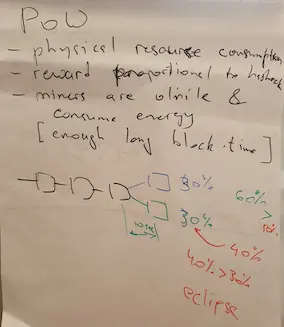 PoW
- physical resource consumption
- reward proportional to hashrate
- miners are olnile &
consume energy
[enough long block time]
30%
60%
>
30%
10sec
40%
40% > 30%
eclipse